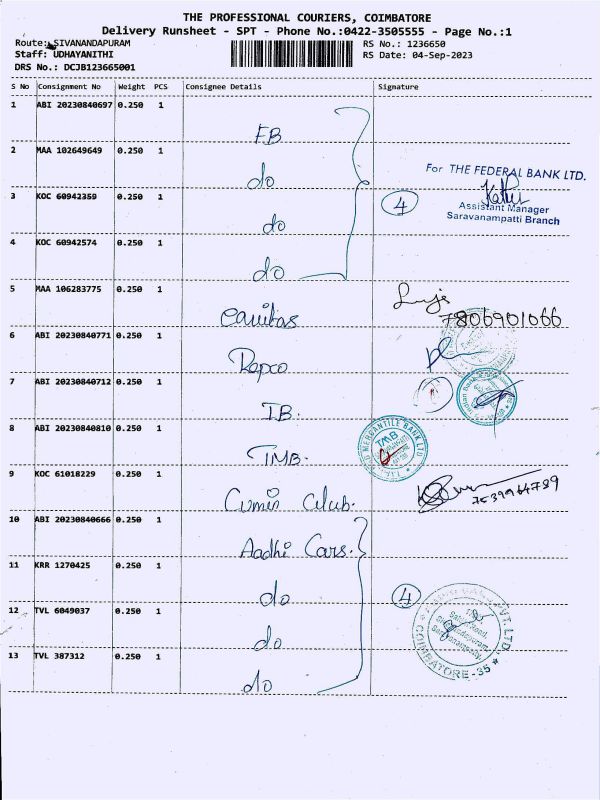 THE PROFESSIONAL COURIERS, COIMBATORE
Delivery Runsheet - SPT - Phone No.:0422-3505555 - Page No.:1
Route: SIVANANDAPURAM
Staff: UDHAYANITHI
DRS No.: DCJB123665001
RS No.: 1236650
RS Date: 04-Sep-2023
S No Consignment No Weight PCS Consignee Details Signature
1 ABI 20230840697 0.250 1 FB
2 MAA 102649649 0.250 1 do
For THE FEDERAL BANK LTD.
3 KOC 60942359 0.250 1 do 4
Assistant Manager
Saravanampatti Branch
4 KOC 60942574 0.250 1 do
5 MAA 106283775 0.250 1 equitas
7806901066
6 ABI 20230840771 0.250 1 Repco
7 ABI 20230840712 0.250 1 IB. 1
8 ABI 20230840810 0.250 1 TMB. TMB
MERCANTILE BANK LTD
9 KOC 61018229 0.250 1 Cumin Club.
7539964789
10 ABI 20230840666 0.250 1 Aadhi Cars.
11 KRR 1270425 0.250 1 do 4
12 TVL 6049037 0.250 1 do
PVT. LTD.
COIMBATORE-35
13 TVL 387312 0.250 1 do